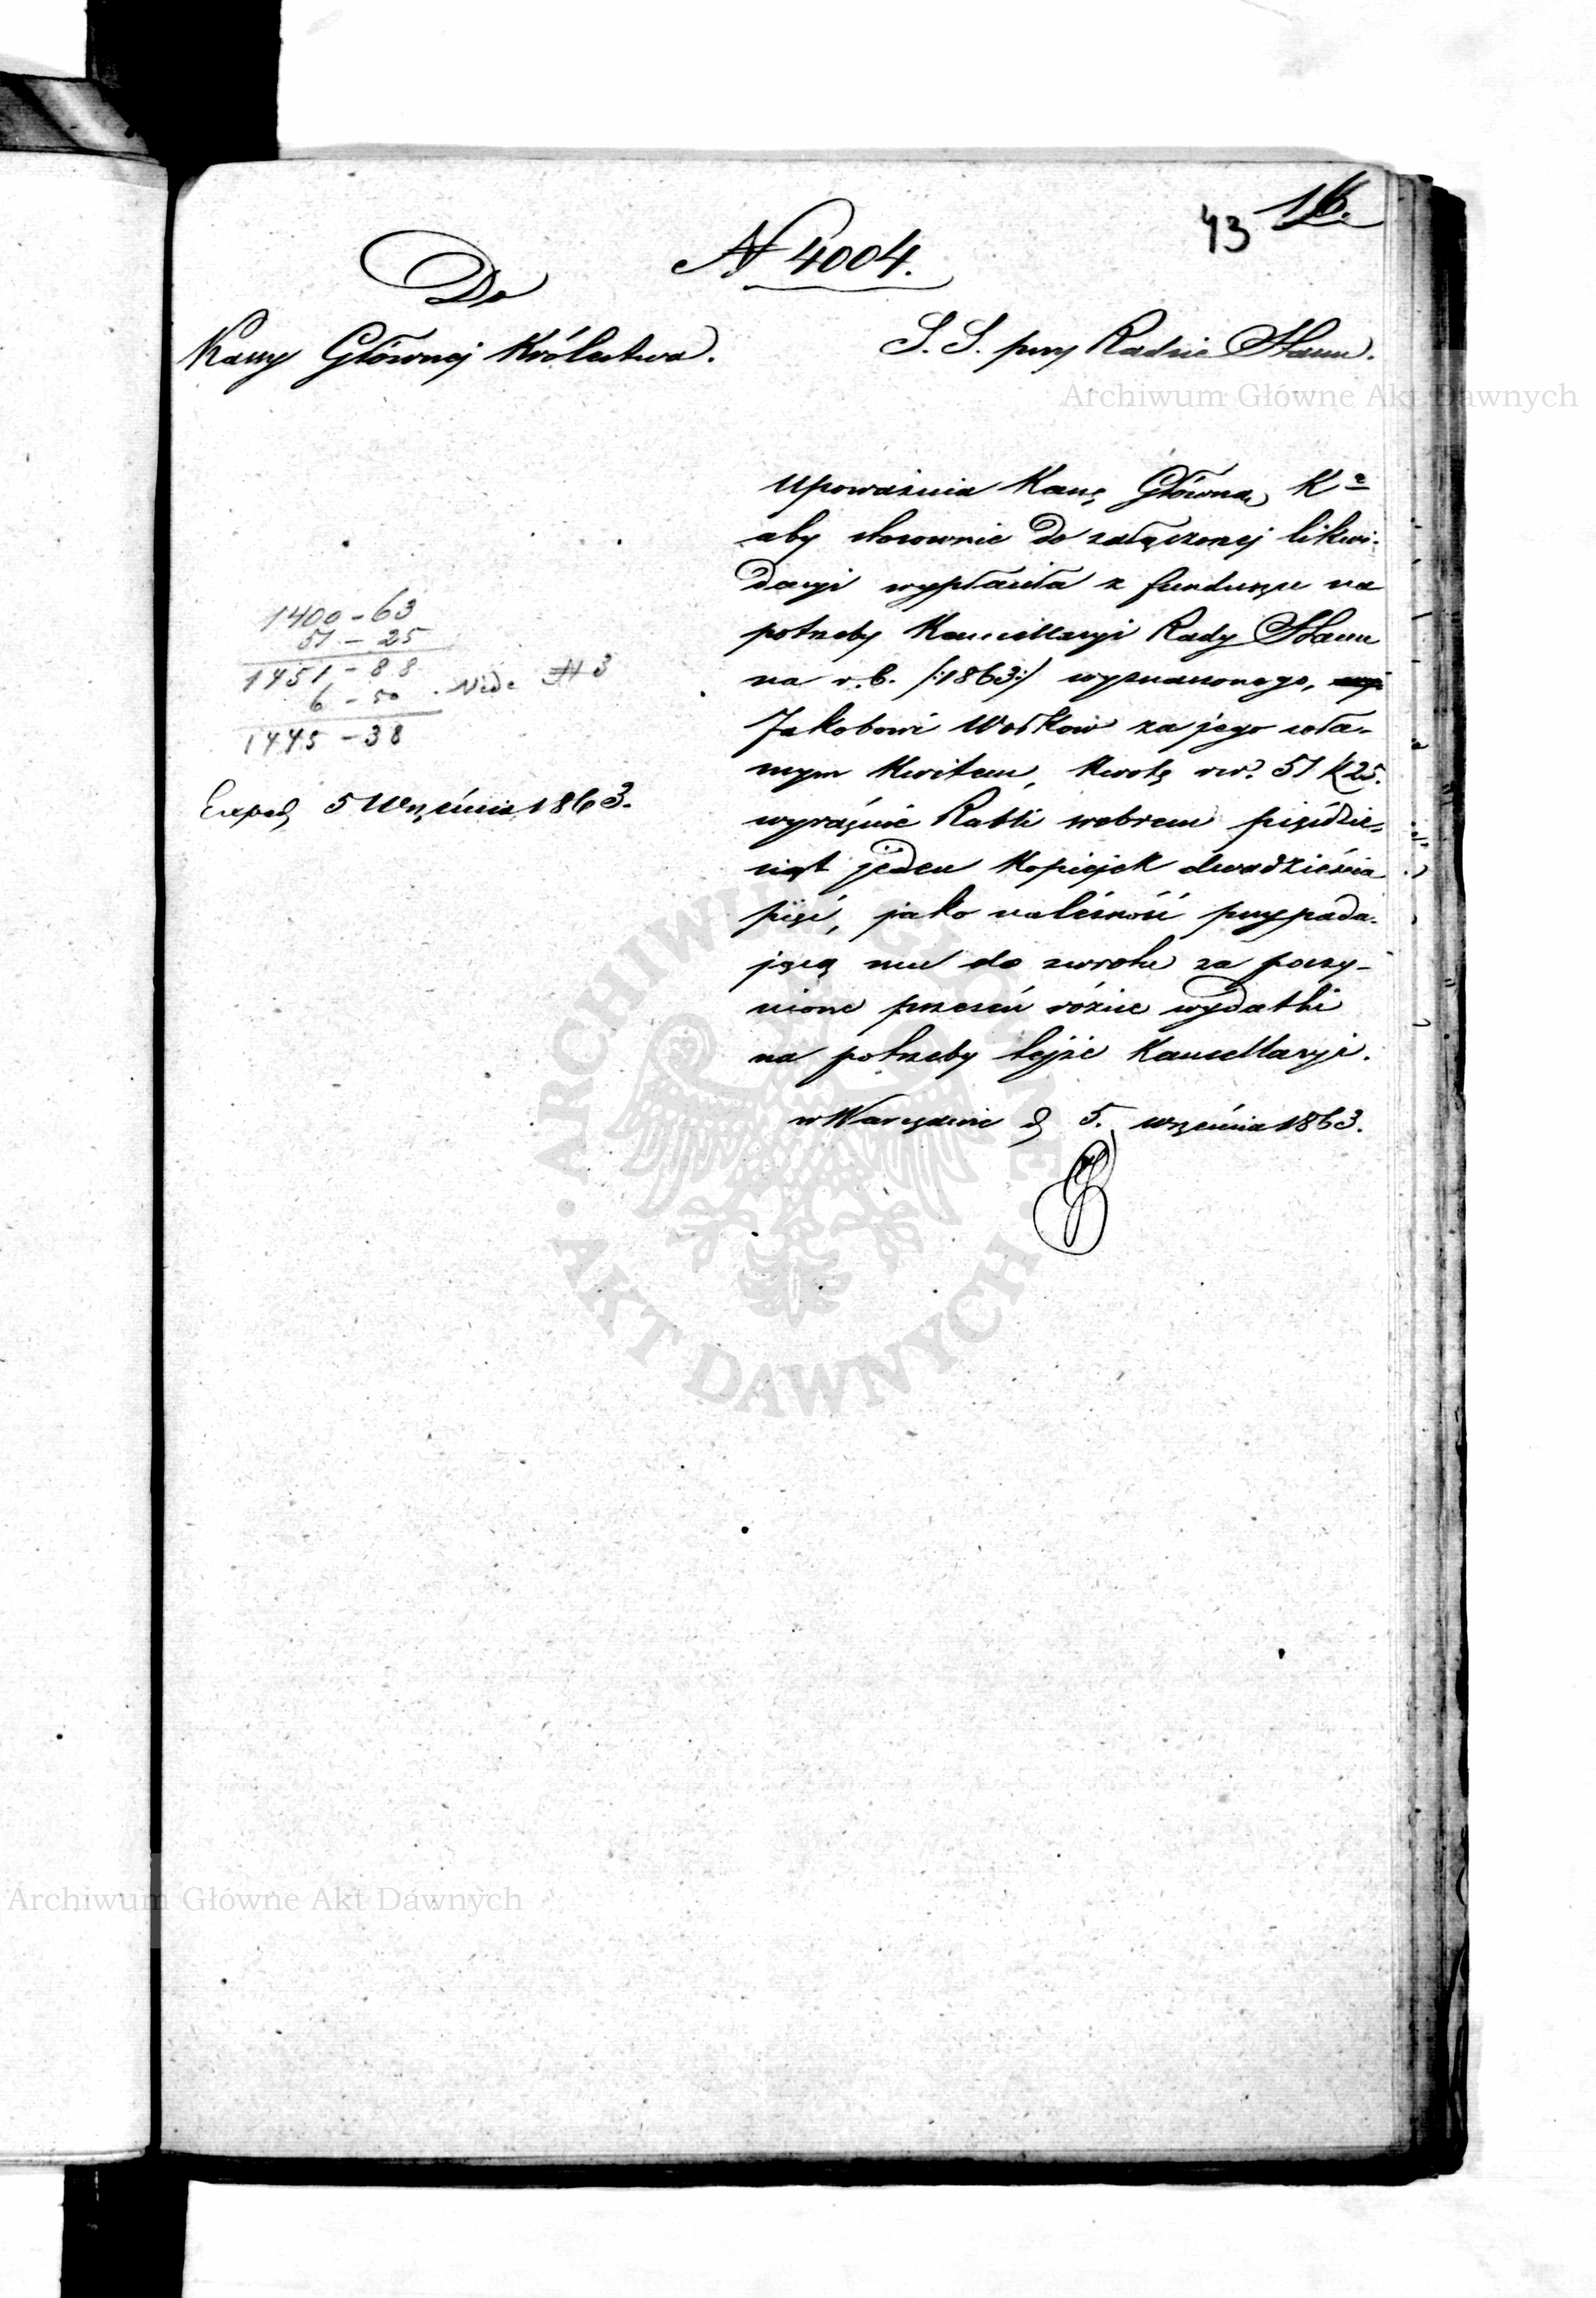 43 16.
N 4004.
Do
Kassy Głównej Królestwa.
S. S. przy Radzie Stanu.
Upoważnia Kassę Główną Kª
aby stosownie do załączonej likwi-
dacyi wypłaciła z funduszu na
potrzeby Kancellaryi Rady Stanu
na r. b. /:1863:/ wyznaczonego,
Jakobowi Wołkow za jego wła-
snym kwitem, kwotę rsr. 51 k 25.
wyraźnie Rubli srebrem pięćdzie-
siąt jeden kopiejek dwadzieścia
pięć, jako należność przypada-
jącą mu do zwrotu za poczy-
nione przezeń różne wydatki
na potrzeby tejże Kancellaryi.
w Warszawie d. 5. września 1863.
1400 - 63
51 - 25
1451 - 88
6 - 50 . Vide N 3
1445 - 38
Exped. 5 Września 1863.
Archiwum Główne Akt Dawnych
ARCHIWUM GŁÓWNE
AKT DAWNYCH
Archiwum Główne Akt Dawnych